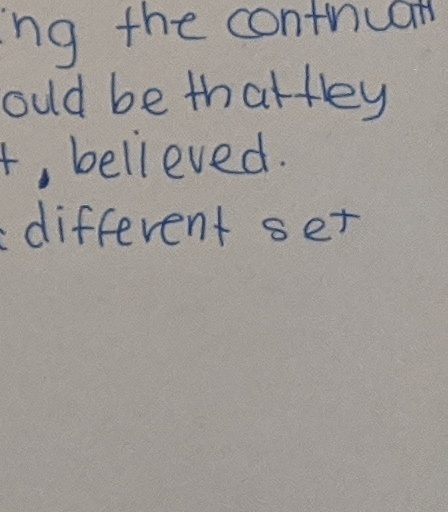 ing the continuati
ould be that they
t, believed.
different set